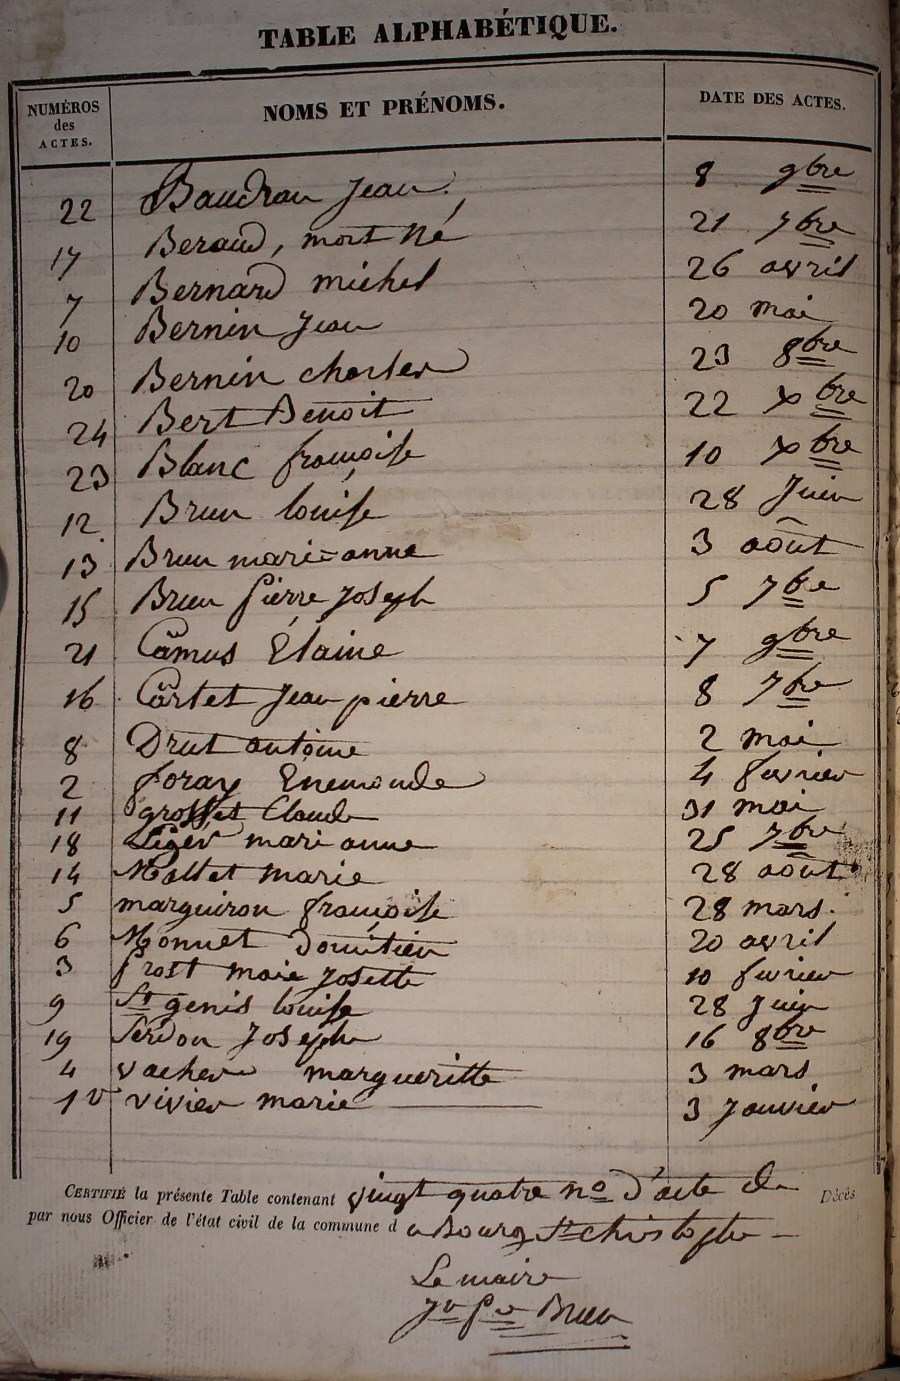 TABLE ALPHABÉTIQUE.
NUMÉROS des ACTES. NOMS ET PRÉNOMS. DATE DES ACTES.
22 Baudran Jean 8 9bre
17 Beraud, mort né 21 7bre
7 Bernard michel 26 avril
10 Bernin Jean 20 mai
20 Bernin charles 23 8bre
24 Bert Benoit 22 Xbre
23 Blanc françoise 10 Xbre
12 Brun louise 28 Juin
13 Brun marie=anne 3 août
15 Brun pierre Joseph 5 7bre
21 Camus Élaine 7 9bre
16 Cartet Jean pierre 8 7bre
8 Drut antoine 2 mai
2 foray Énemonde 4 fevrier
11 grosset Claude 31 mai
18 Léger marianne 25 7bre
14 Mallet marie 28 août
5 marguiron françoise 28 mars.
6 Monnet domitien 20 avril
3 prost marie Josette 10 fevrier
9 St genis louise 28 Juin
19 Serdon Joseph 16 8bre
4 vacher margueritte 3 mars
1er vivier marie 3 Janvier
CERTIFIÉ la présente Table contenant vingt quatre no d'acte de Décès
par nous Officier de l'état civil de la commune d e Bourg St christophe
Le maire
Jh Pre Brun